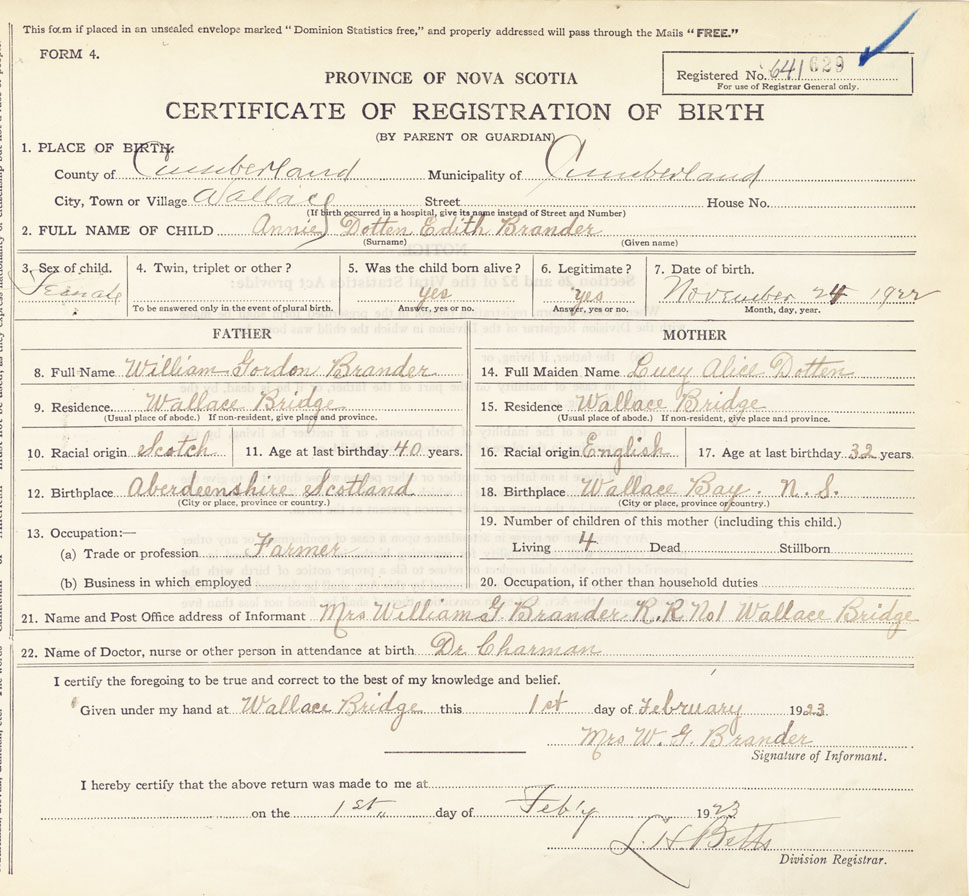 This form if placed in an unsealed envelope marked "Dominion Statistics free," and properly addressed will pass through the Mails "FREE."
FORM 4.
PROVINCE OF NOVA SCOTIA
Registered No. 641 629
For use of Registrar General only.
CERTIFICATE OF REGISTRATION OF BIRTH
(BY PARENT OR GUARDIAN)
1. PLACE OF BIRTH:
County of Cumberland Municipality of Cumberland
City, Town or Village Wallace Street House No.
(If birth occurred in a hospital, give its name instead of Street and Number)
2. FULL NAME OF CHILD Annie Dotten Edith Brander
(Surname) (Given name)
3. Sex of child. 4. Twin, triplet or other? 5. Was the child born alive? 6. Legitimate? 7. Date of birth.
Female yes yes November 24 1922
To be answered only in the event of plural birth. Answer, yes or no. Answer, yes or no. Month, day, year.
FATHER MOTHER
8. Full Name William Gordon Brander 14. Full Maiden Name Lucy Alice Dotten
9. Residence Wallace Bridge 15. Residence Wallace Bridge
(Usual place of abode.) If non-resident, give place and province. (Usual place of abode.) If non-resident, give place and province.
10. Racial origin Scotch 11. Age at last birthday 40 years. 16. Racial origin English 17. Age at last birthday 32 years.
12. Birthplace Aberdeenshire Scotland 18. Birthplace Wallace Bay. N.S.
(City or place, province or country.) (City or place, province or country.)
19. Number of children of this mother (including this child.)
13. Occupation:—
(a) Trade or profession Farmer Living 4 Dead Stillborn
(b) Business in which employed 20. Occupation, if other than household duties
21. Name and Post Office address of Informant Mrs William G. Brander R.R No1 Wallace Bridge
22. Name of Doctor, nurse or other person in attendance at birth Dr. Charman
I certify the foregoing to be true and correct to the best of my knowledge and belief.
Given under my hand at Wallace Bridge this 1st day of February 1923
Mrs W. G. Brander
Signature of Informant.
I hereby certify that the above return was made to me at
on the 1st day of Feb'y 1923
L. H. Betts
Division Registrar.